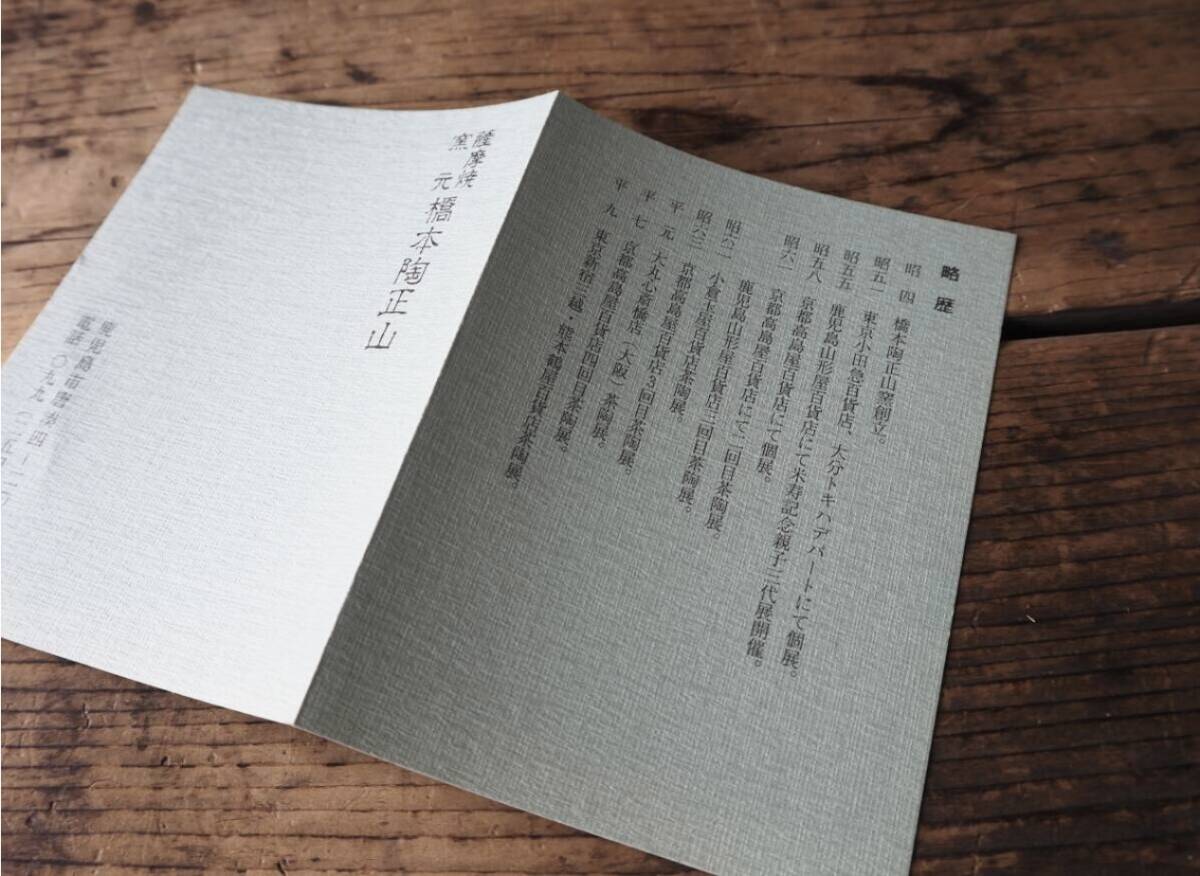 略歴
昭四 橋本陶正山窯創立。
昭五一 東京小田急百貨店、大分トキハデパートにて個展。
昭五五 鹿児島山形屋百貨店にて米寿記念親子三代展開催。
昭五八 京都高島屋百貨店にて個展。
昭六一 鹿児島山形屋百貨店にて二回目茶陶展。
昭六二 小倉玉屋百貨店茶陶展。
昭六三 京都高島屋百貨店3回目茶陶展。
平元 大丸心斎橋店（大阪）茶陶展。
平七 京都高島屋百貨店四回目茶陶展。
平九 東京新宿三越・熊本鶴屋百貨店茶陶展。
薩摩焼
窯元 橋本陶正山
鹿児島市
電話 〇九九